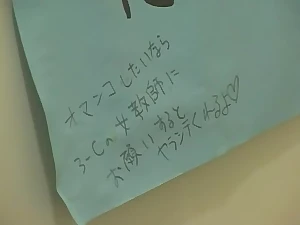 オマンコしたいなら
3-Cの女教師に
お願いすると
ヤラシテくれるよ♡